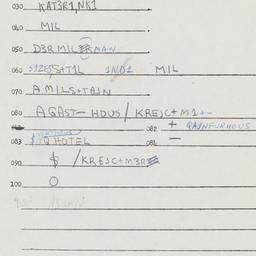 030 KAT3R1,NK1
040 MIL
050 D3R MIL MAN
060 S1ZE S+T1L 1ND1 MIL
070 A MILS+TA1N
080 AGAST— HOUS / KREJC+M1+-
082 + QA1NFURHOUS
083 Q HOTEL 084 —
090 $ /KREJC+M3R
100 O